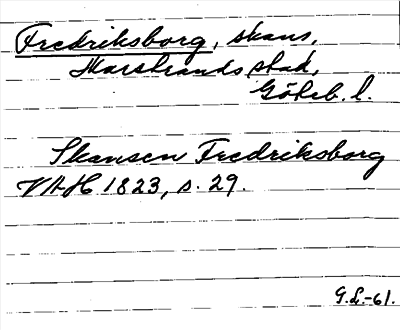 Fredriksborg, skans,
Marstrands stad,
Göteb. l.
Skansen Fredriksborg
VAH 1823, s. 29.
G.L.-61.